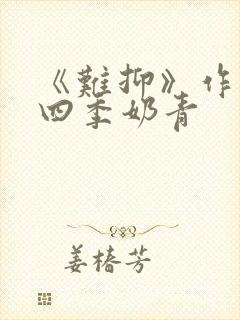 《難抑》作
四季奶青
姜椿芳